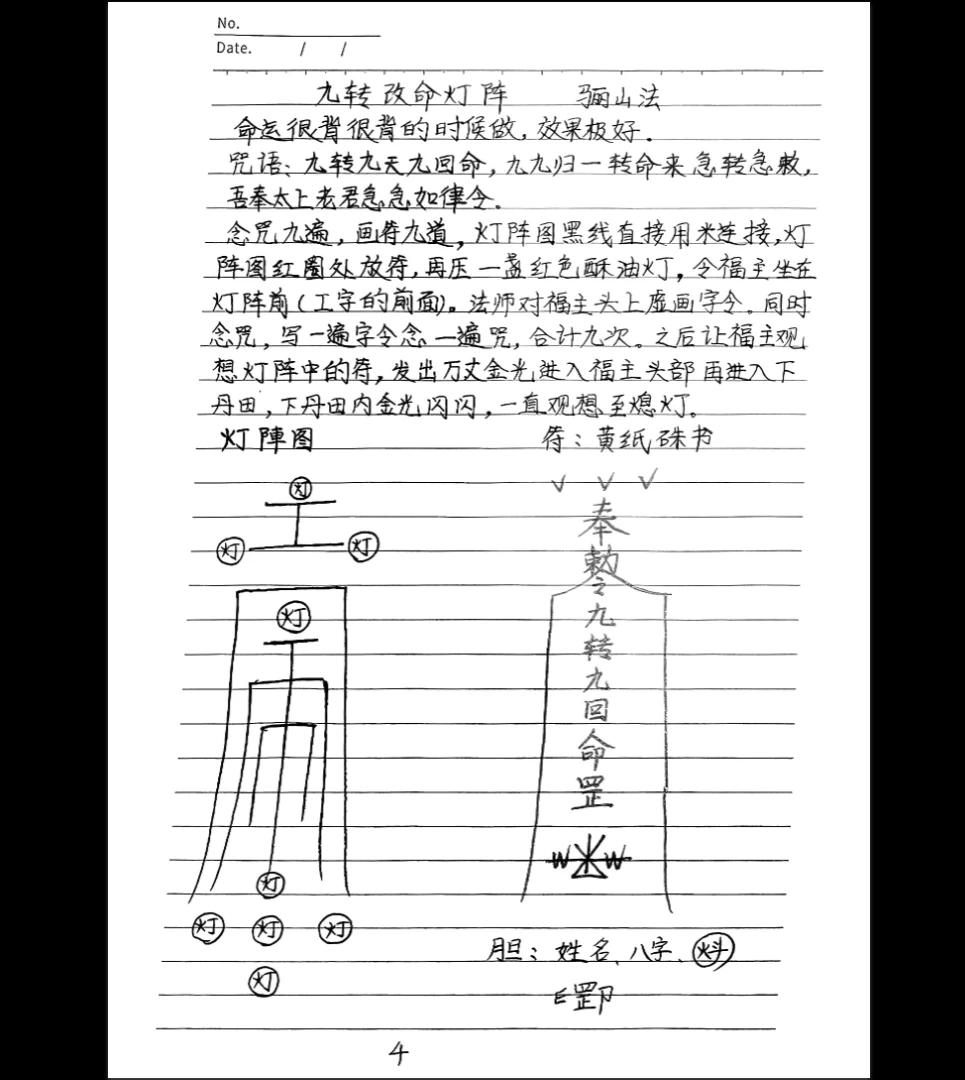 No.
Date. / /
九转改命灯阵 骊山法
命运很背很背的时候做，效果极好.
咒语：九转九天九回命，九九归一转命来 急转急敕，
吾奉太上老君急急如律令.
念咒九遍，画符九道，灯阵图黑线直接用米连接，灯
阵图红圈处放符，再压一盏红色酥油灯，令福主坐在
灯阵前(工字的前面)。法师对福主头上虚画字令。同时
念咒，写一遍字令念一遍咒，合计九次。之后让福主观
想灯阵中的符，发出万丈金光进入福主头部再进入下
丹田，下丹田内金光闪闪，一直观想至熄灯。
灯陣图 符：黄纸硃书
灯
灯 灯
灯
灯
灯 灯 灯
灯
奉
敕
令
九
转
九
回
命
罡
胆：姓名、八字、
4